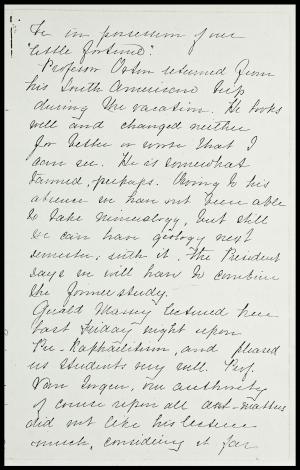 be in possession of our
"little fortune".
Professor Orton returned from
his South American trip
during the vacation. He looks
well and changed neither
for better or worse that I
can see. He is somewhat
tanned, perhaps. Owing to his
absence we have not been able
to take mineralogy, but still
we can have geology next
semester, with it. The President
says we will have to combine
the former study.
Gerald Massey lectured here
last Friday night upon
Pre-Raphaelitism, and pleased
us students very well. Prof.
Van Ingen, our authority
of course upon all art-matters
did not like his lecture
much, considering it far